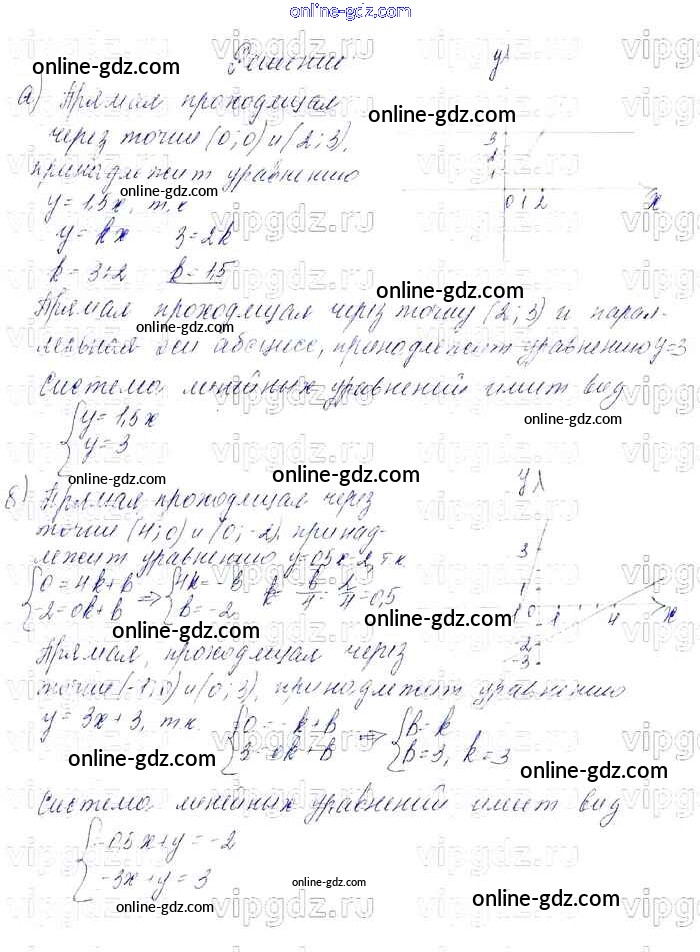 online-gdz.com
Решение
y
online-gdz.com
а) Прямая проходящая
online-gdz.com
через точки (0;0) и (2;3),
3
2
1
принадлежит уравнению
online-gdz.com
0 1 2 x
y = 1,5x, т.к
y = kx 3 = 2k
k = 3÷2 k = 1,5
online-gdz.com
Прямая проходящая через точку (2;3) и парал-
online-gdz.com
лельная оси абсцисс, принадлежит уравнению y=3
Система линейных уравнений имеет вид
y = 1,5x
y = 3
online-gdz.com
online-gdz.com
online-gdz.com
y
б) Прямая проходящая через
точки (4;0) и (0;-2), принад-
лежит уравнению y=0,5x-2, т.к
3
1
0 = 4k+b => 4k = -b k = b/4 = 2/4 = 0,5
-2 = 0k+b b = -2
-1 0 1 4 x
-2
-3
online-gdz.com
online-gdz.com
Прямая, проходящая через
точки (-1;0) и (0;3), принадлежит уравнению
y = 3x+3, т.к. 0 = -k+b => b = k
3 = 0k+b b = 3, k = 3
online-gdz.com
online-gdz.com
Система линейных уравнений имеет вид
-0,5x+y = -2
-3x+y = 3
online-gdz.com
online-gdz.com
online-gdz.com